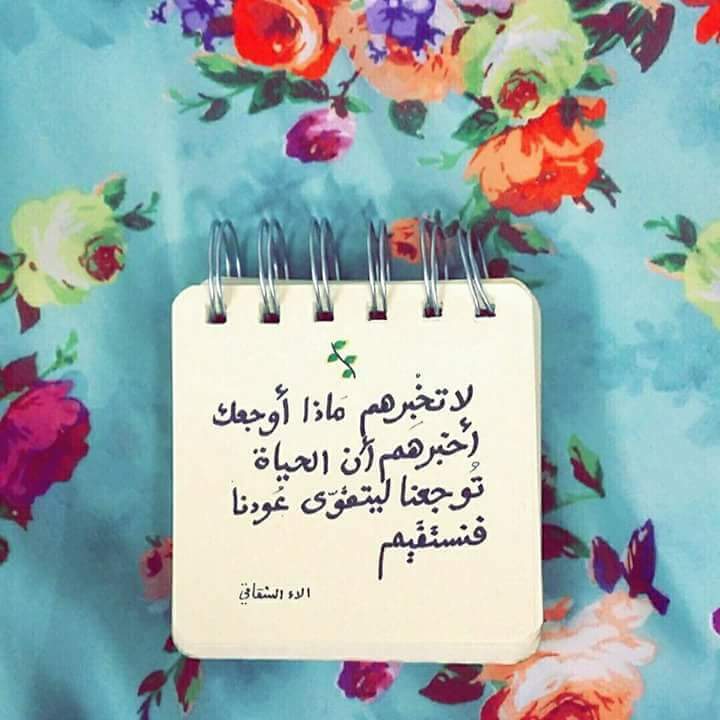 لا تخْبِرهم مَاذا أوجعك
أخبرهَم أن الحياة
تُوجعنا ليتقوّى عُودنا
فنستَقَيِم
الاء الشقاقي